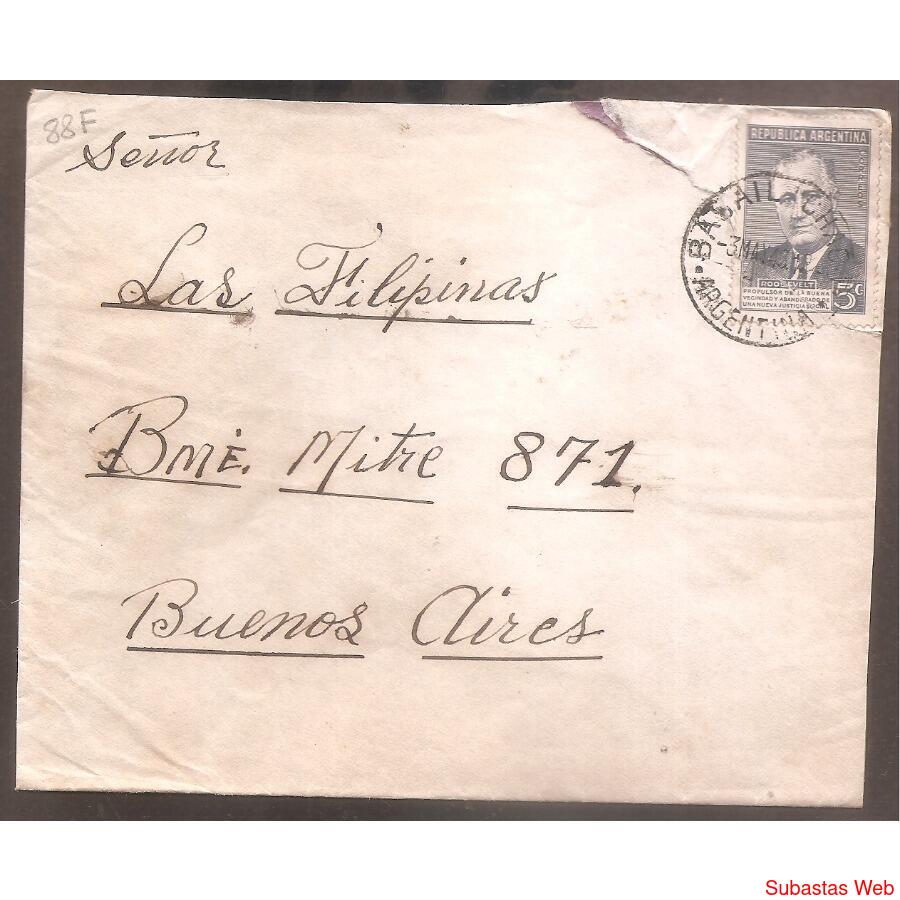 88F
Señor
Las Filipinas
Bmé. Mitre 871.
Buenos Aires
REPUBLICA ARGENTINA
ROOSEVELT
PROPULSOR DE LA BUENA
VECINDAD Y ABANDERADO DE
UNA NUEVA JUSTICIA SOCIAL
5c
ARGENTINA
Subastas Web